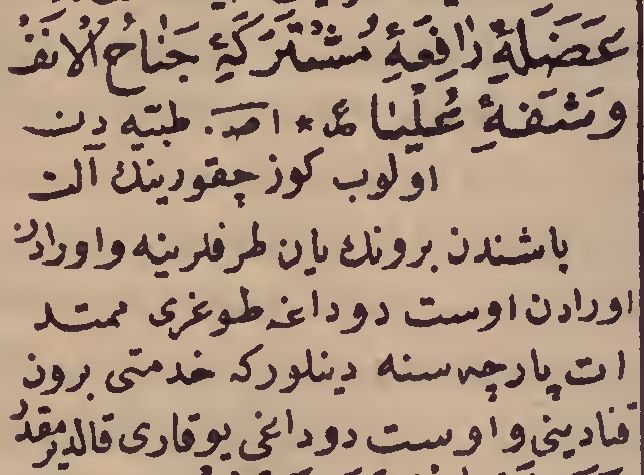 عَضَلَهٔ رَافِعَهٔ مُشْتَرَكَهٔ جَنَاحُ الْاَنْفْ
وَشَفَهٔ عُلْيَا عـ * اصـ. طبيه دن
اولوب كوز چقورينك آلت
باشندن برونك يان طرفلرينه واورادن
اورادن اوست دوداغه طوغرى ممتد
ات پارچه سنه دينلوركه خدمتى برون
قنادينى واوست دوداغى يوقارى قالديرمقدر